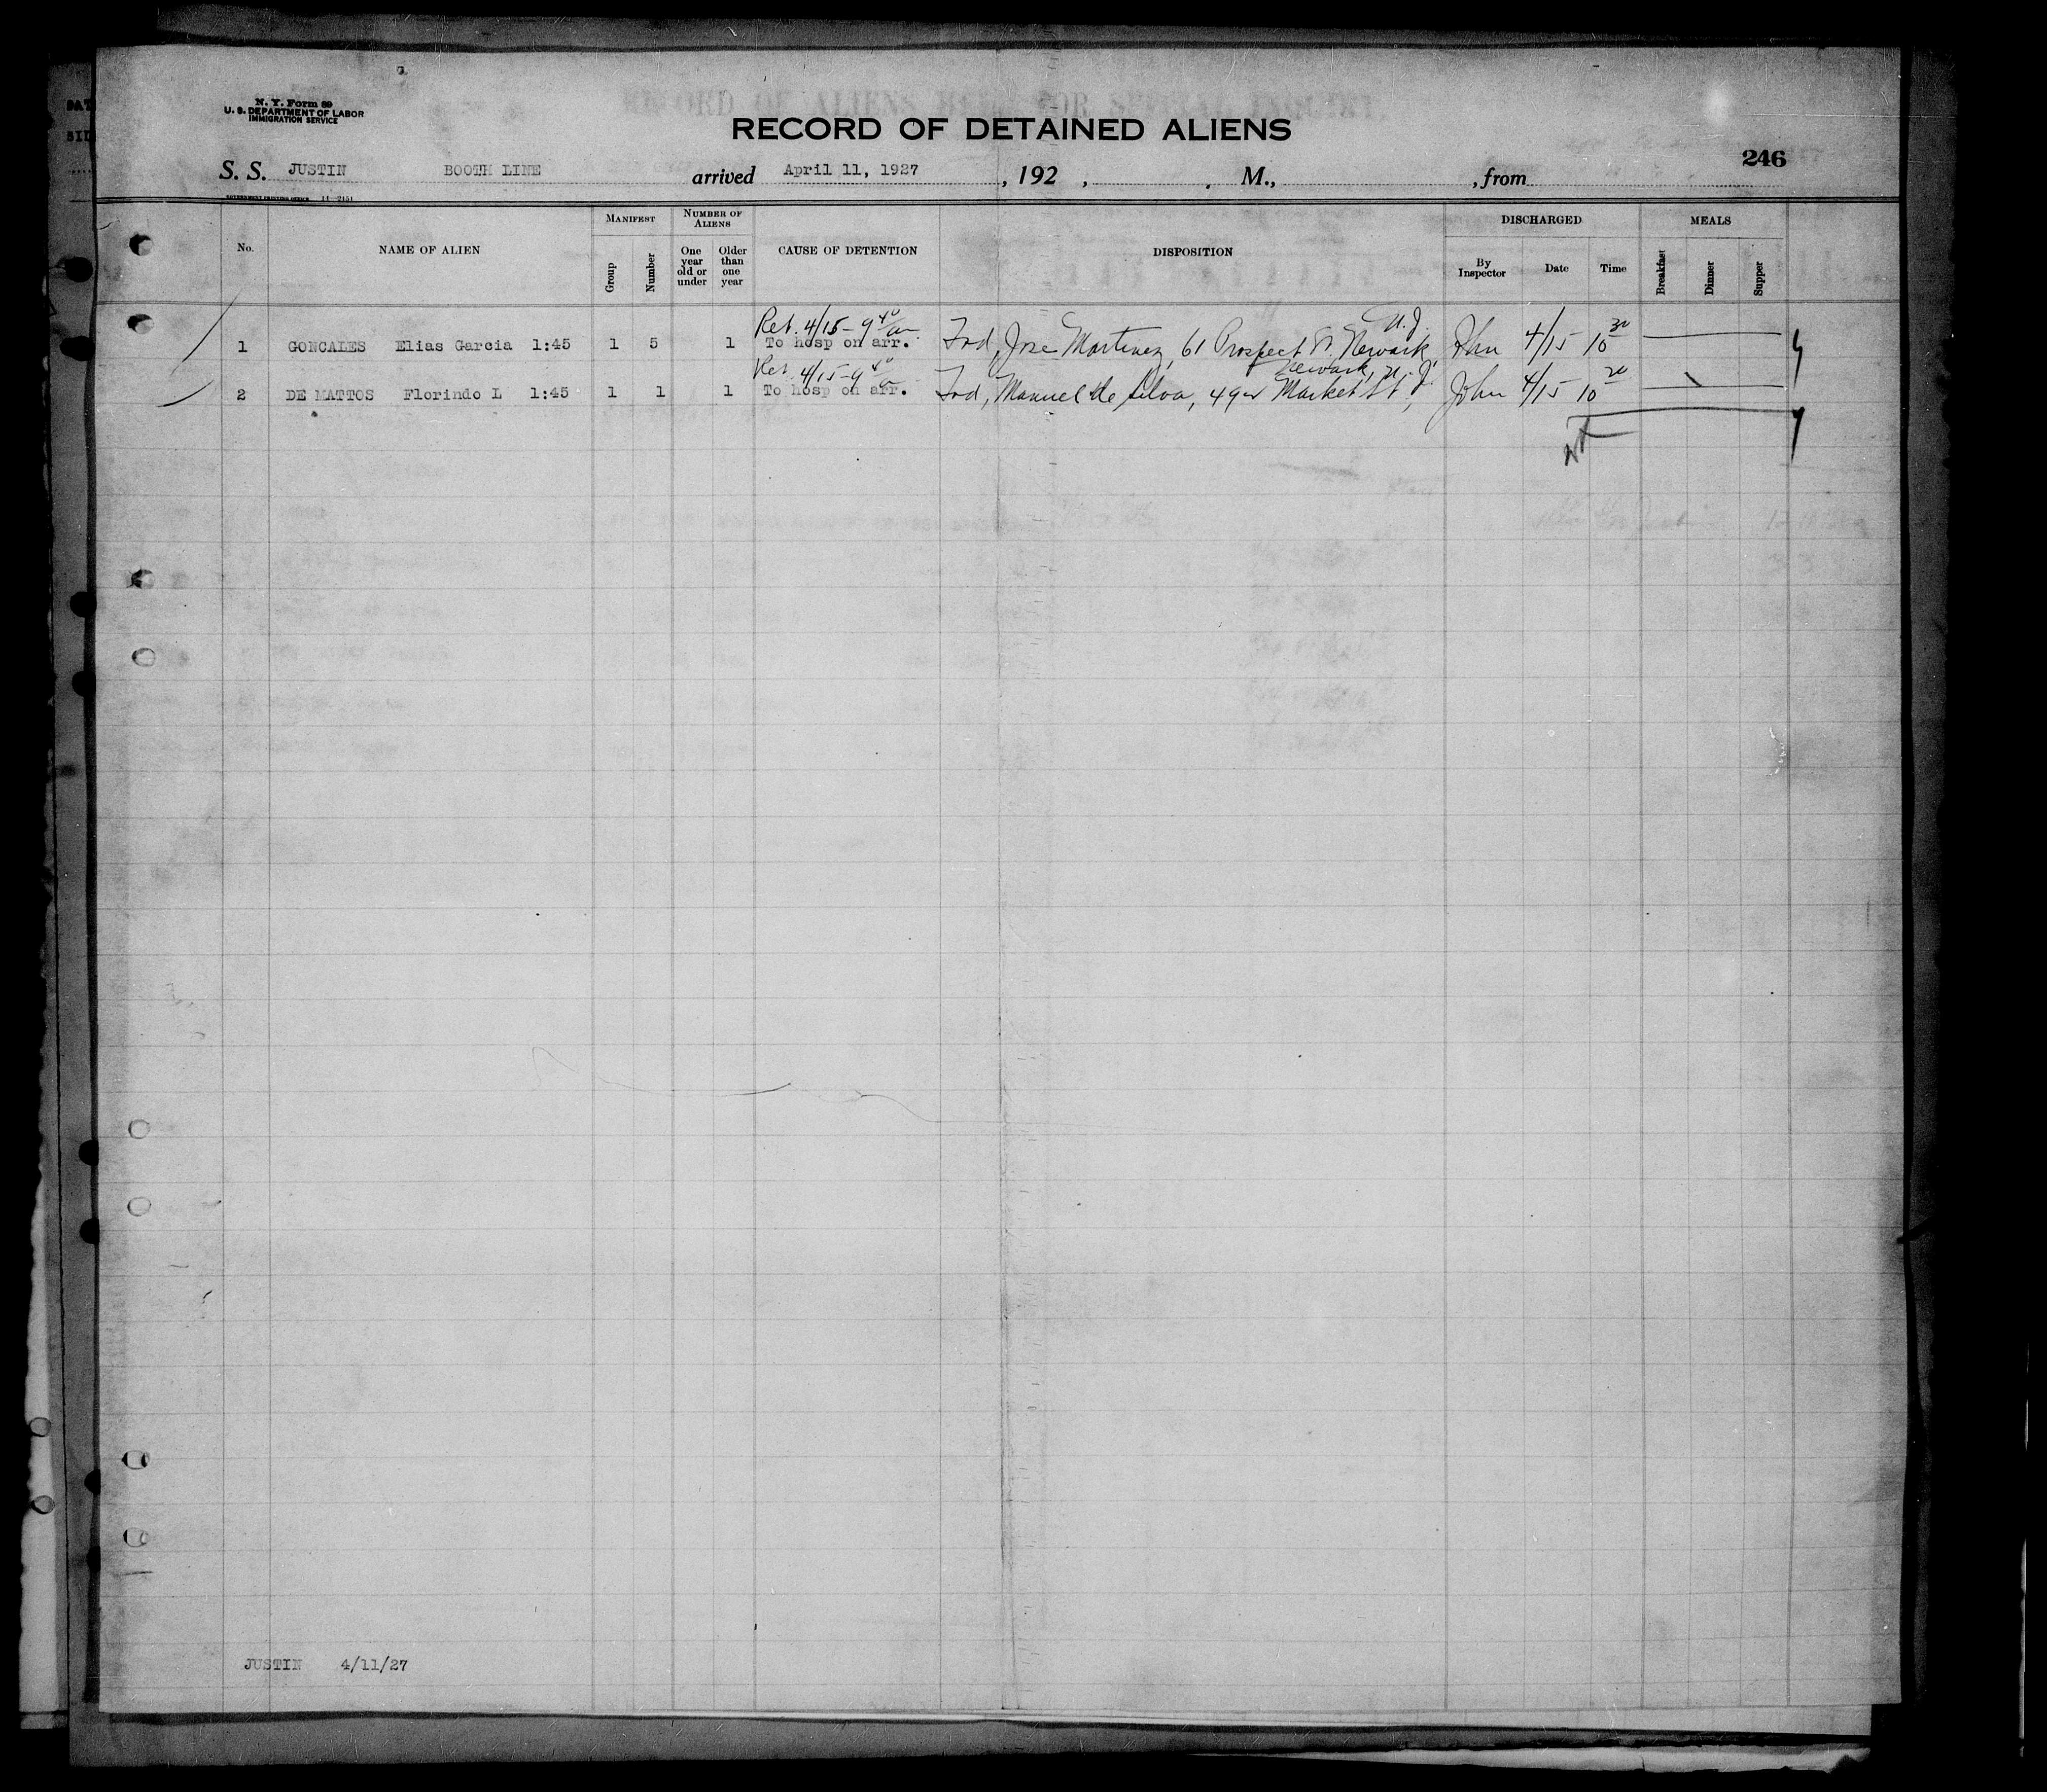 N. Y. Form 89
U. S. DEPARTMENT OF LABOR
IMMIGRATION SERVICE
RECORD OF ALIENS HELD FOR SPECIAL INQUIRY.
RECORD OF DETAINED ALIENS
246
S. S. JUSTIN BOOTH LINE arrived April 11, 1927, 192 , . M., , from
GOVERNMENT PRINTING OFFICE 11-2151
No. NAME OF ALIEN MANIFEST Group Number NUMBER OF ALIENS One year old or under Older than one year CAUSE OF DETENTION DISPOSITION DISCHARGED By Inspector Date Time MEALS Breakfast Dinner Supper
Ret. 4/15-9 40 am N.J.
1 GONCALES Elias Garcia 1:45 1 5 1 To hosp on arr. Frd, Jose Martinez, 61 Prospect St. Newark, John 4/15 10 30
Ret. 4/15-9 40 am Newark, N.J.
2 DE MATTOS Florindo L 1:45 1 1 1 To hosp on arr. Frd, Manuel de Silva, Market St, John 4/15 10 20
JUSTIN 4/11/27